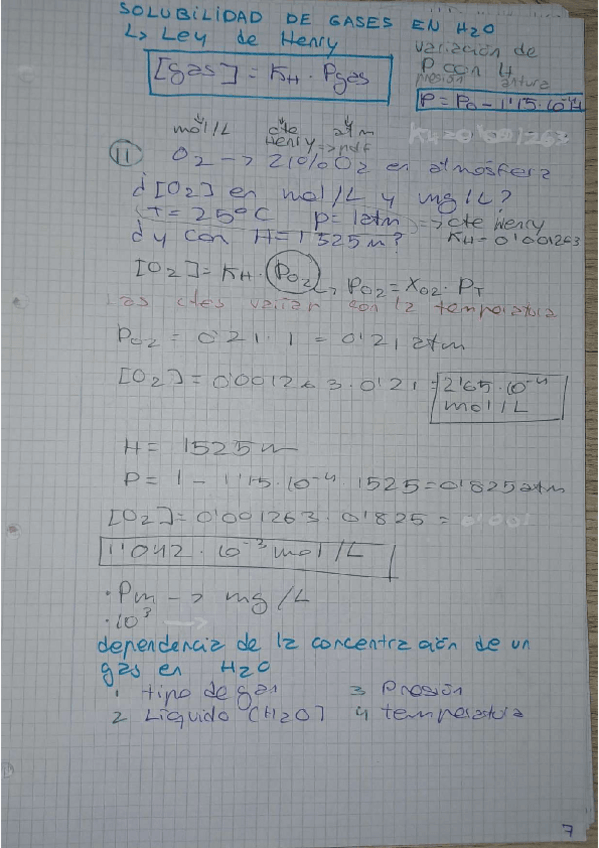 SOLUBILIDAD DE GASES EN H2O
L> Ley de Henry
variación de
P con H
presión altura
[gas] = KH · Pgas
P = P0 - 1'15·10-4H
mol/L cte atm
Henry => pdf
KH=0'001263
11 O2 -> 21% O2 en atmósfera
¿[O2] en mol/L y mg/L?
T = 25ºC P = 1atm => cte Henry
¿y con H = 1525m? KH = 0'001263
[O2] = KH · PO2 L> PO2 = XO2 · PT
Las ctes varían con la temperatura
PO2 = 0'21 · 1 = 0'21 atm
[O2] = 0'001263 · 0'21 = 2'65·10-4
mol/L
H = 1525m
P = 1 - 1'15·10-4 1525 = 0'825atm
[O2] = 0'001263 · 0'825 = 0'001
1'042 · 10-3 mol/L
· Pm -> mg/L
· 10^3
dependencia de la concentración de un
gas en H2O
1 tipo de gas 3 Presión
2 Líquido (H2O) 4 temperatura
7